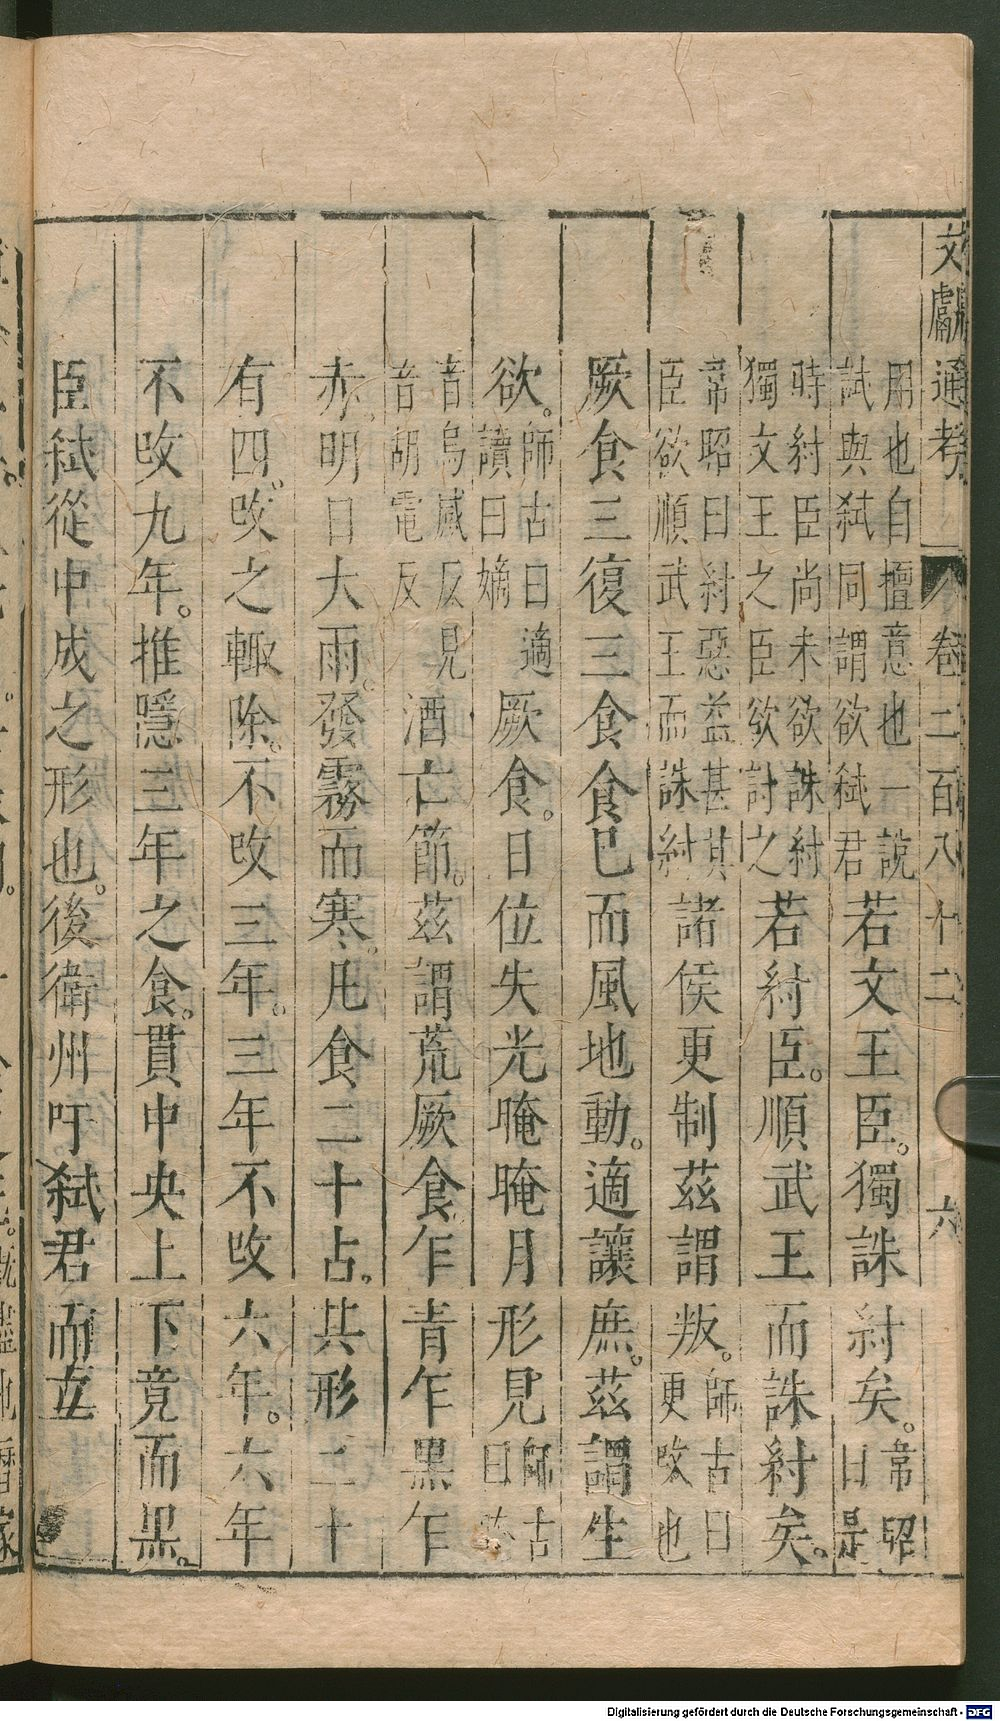 文獻通考 卷二百八十二 六
用也自擅意也一說
試與弒同謂欲弒君
若文王臣。獨誅紂矣。
韋昭
曰是
時紂臣尚未欲誅紂
獨文王之臣欲討之
若紂臣。順武王而誅紂矣。
韋昭曰紂惡益甚其
臣欲順武王而誅紂
諸侯更制茲謂叛。
師古曰
更攺也
厥食三復三食食巳而風地動。適讓庶。茲謂生
欲。
師古曰適
讀曰嫡
厥食。日位失光晻晻月形見
師古
曰晻
音烏感反見
音胡電反
酒亡節。茲謂荒厥食。乍青乍黑乍
赤。明日大雨。發霧而寒。凡食二十占。其形二十
有四。攺之輙除。不攺三年。三年不攺六年。六年
不攺九年。推隱三年之食。貫中央上下竟而黑。
臣弒從中成之形也。後衛州吁弒君而立
Digitalisierung gefördert durch die Deutsche Forschungsgemeinschaft - DFG